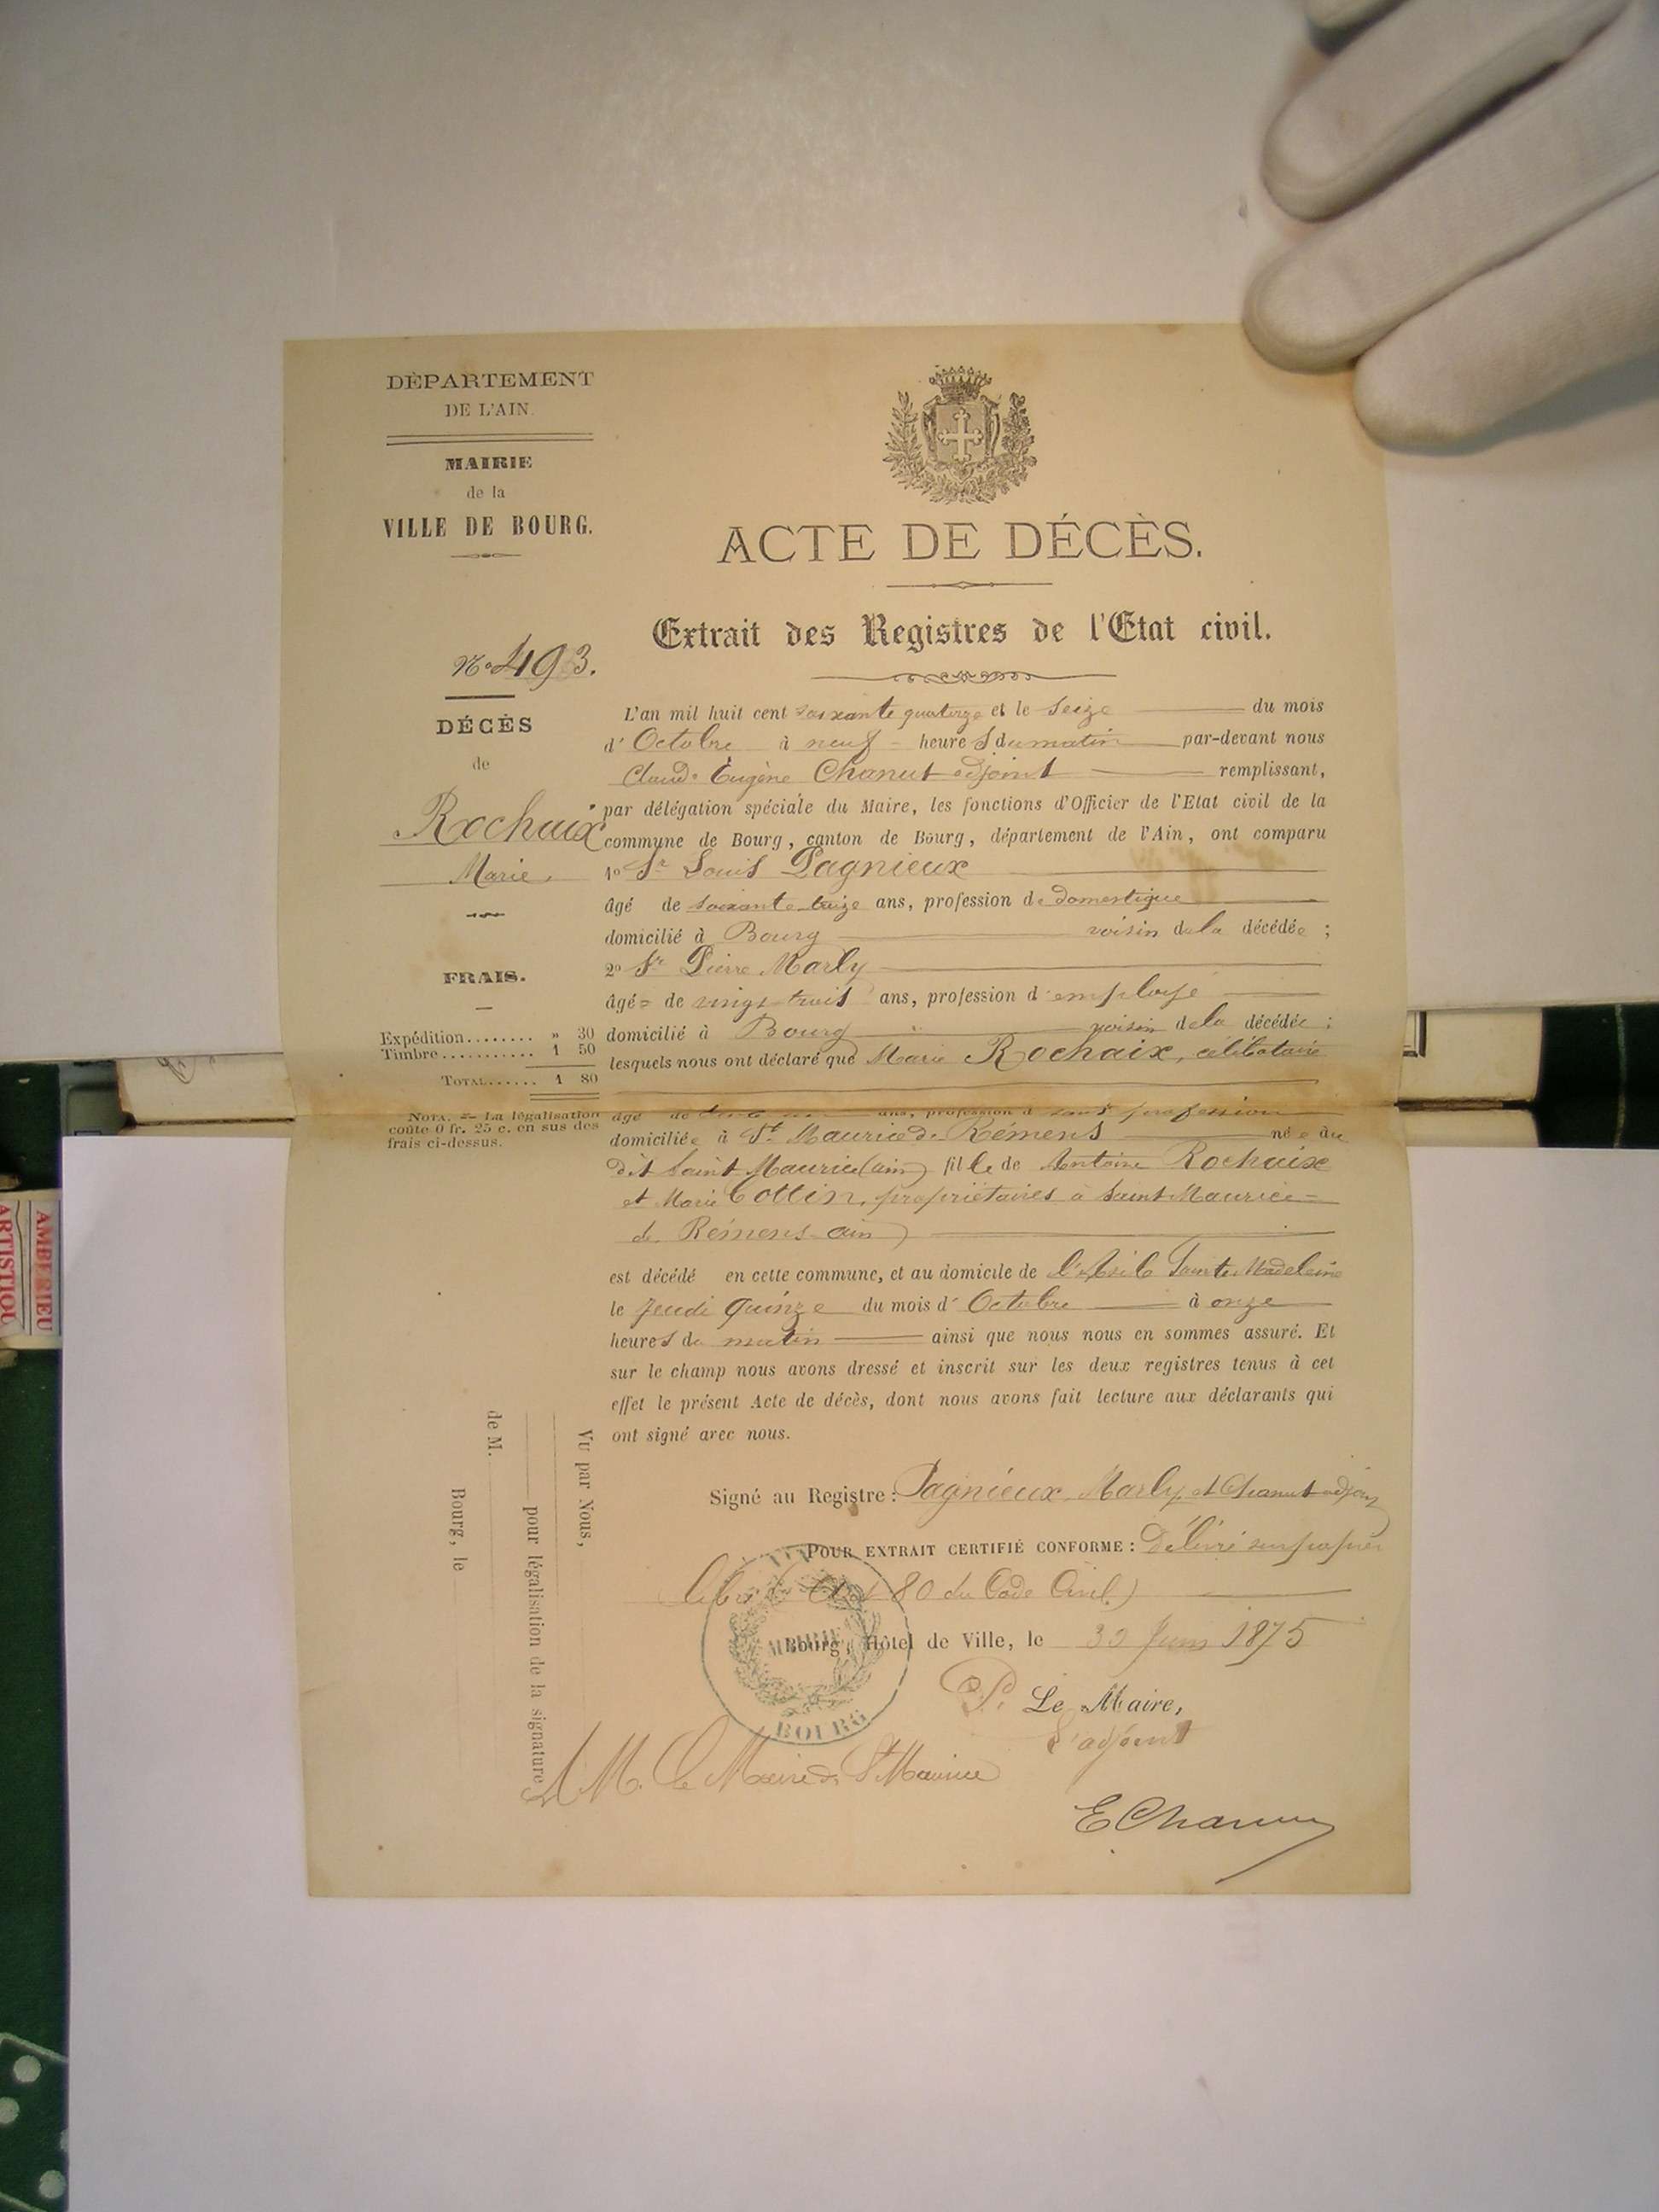 DÉPARTEMENT
DE L'AIN.
MAIRIE
de la
VILLE DE BOURG.
N° 493.
DÉCÈS
de
Rochaix
Marie
FRAIS.
Expédition........ » 30
Timbre........... 1 50
TOTAL...... 1 80
NOTA. — La légalisation
coûte 0 fr. 25 c. en sus des
frais ci-dessus.
ACTE DE DÉCÈS.
Extrait des Registres de l'Etat civil.
L'an mil huit cent soixante quatorze et le seize du mois
d'Octobre à neuf heures du matin par-devant nous
Claude Eugène Chanut adjoint remplissant,
par délégation spéciale du Maire, les fonctions d'Officier de l'Etat civil de la
commune de Bourg, canton de Bourg, département de l'Ain, ont comparu
1° Sr Louis Pagnieux
âgé de soixante treize ans, profession de domestique
domicilié à Bourg voisin de la décédée ;
2° Sr Pierre Marly
âgé de vingt trois ans, profession d'employé
domicilié à Bourg voisin de la décédée ;
lesquels nous ont déclaré que Marie Rochaix, célibataire
âgé de ans, profession d sans profession
domiciliée à St Maurice de Rémens née au
dit Saint Maurice (ain) fille de Antoine Rochaix
et Marie Cottin, propriétaires à Saint Maurice
de Rémens ain)
est décédé en cette commune, et au domicile de l'Asile Sainte Madeleine
le Jeudi Quinze du mois d'Octobre à onze
heures du matin ainsi que nous nous en sommes assuré. Et
sur le champ nous avons dressé et inscrit sur les deux registres tenus à cet
effet le présent Acte de décès, dont nous avons fait lecture aux déclarants qui
ont signé avec nous.
Signé au Registre : Pagnieux Marly et Chanut adjoint
POUR EXTRAIT CERTIFIÉ CONFORME : Délivré sur papier
libre (Art 80 du Code Civil)
Bourg, Hôtel de Ville, le 30 Juin 1875
P. Le Maire,
L'adjoint
E Chanut
A M. Le Maire de St Maurice
MAIRIE
BOURG
Vu par Nous,
pour légalisation de la signature
de M.
Bourg, le
AMBERIEU
ARTISTIQU